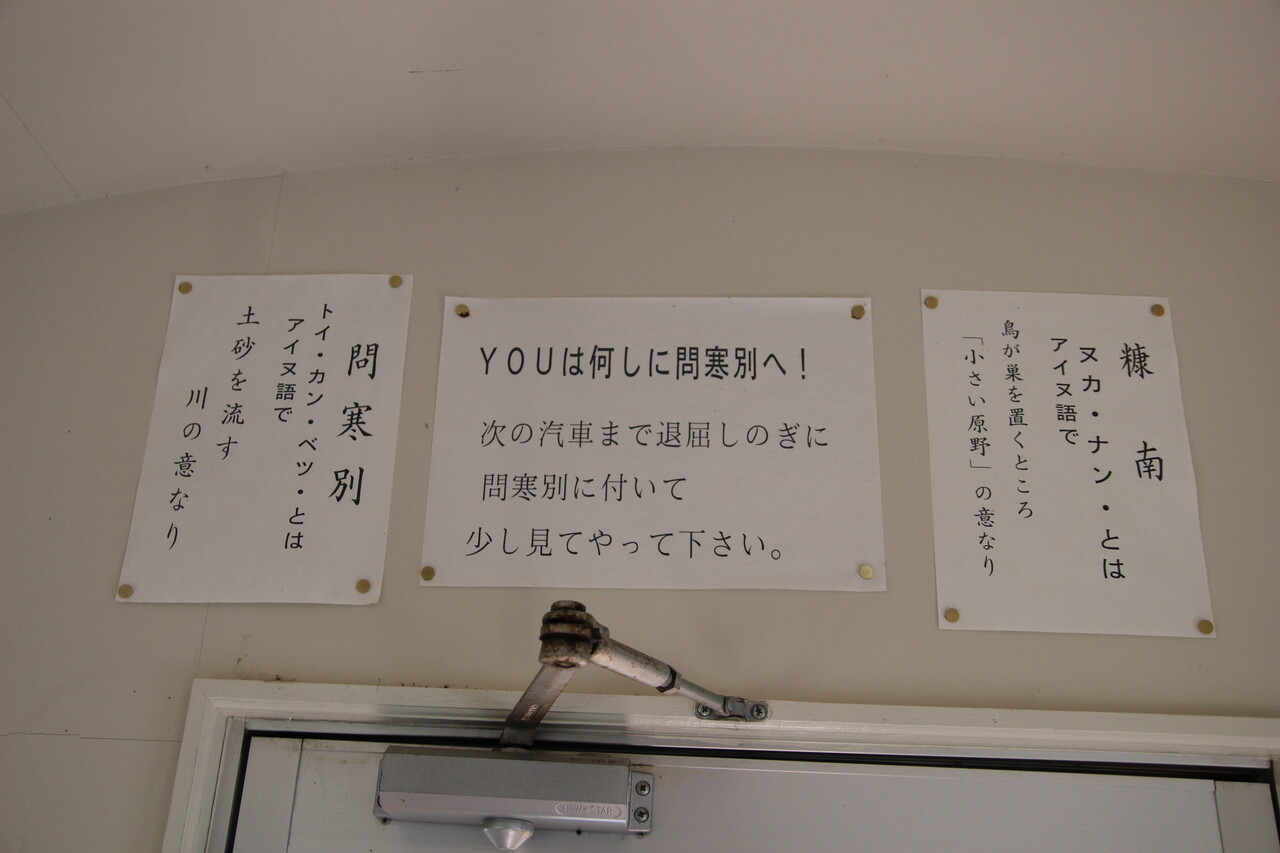 問寒別
トイ・カン・ベツ・とは
アイヌ語で
土砂を流す
川の意なり
YOUは何しに問寒別へ！
次の汽車まで退屈しのぎに
問寒別に付いて
少し見てやって下さい。
糠南
ヌカ・ナン・とは
アイヌ語で
鳥が巣を置くところ
「小さい原野」の意なり
NEW★STAR